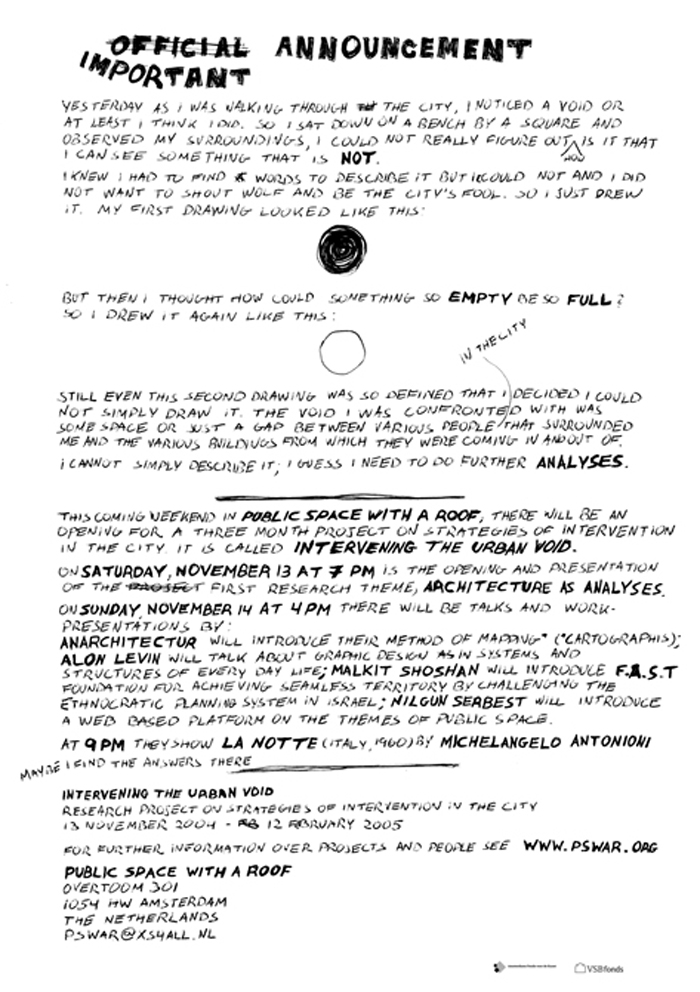 OFFICIAL ANNOUNCEMENT
IMPORTANT
YESTERDAY AS I WAS WALKING THROUGH THE CITY, I NOTICED A VOID OR
AT LEAST I THINK I DID. SO I SAT DOWN ON A BENCH BY A SQUARE AND
OBSERVED MY SURROUNDINGS, I COULD NOT REALLY FIGURE OUT HOW IS IT THAT
I CAN SEE SOMETHING THAT IS NOT.
I KNEW I HAD TO FIND WORDS TO DESCRIBE IT BUT I COULD NOT AND I DID
NOT WANT TO SHOUT WOLF AND BE THE CITY'S FOOL. SO I JUST DREW
IT. MY FIRST DRAWING LOOKED LIKE THIS:
BUT THEN I THOUGHT HOW COULD SOMETHING SO EMPTY BE SO FULL?
SO I DREW IT AGAIN LIKE THIS:
IN THE CITY
STILL EVEN THIS SECOND DRAWING WAS SO DEFINED THAT I DECIDED I COULD
NOT SIMPLY DRAW IT. THE VOID I WAS CONFRONTED WITH WAS
SOME SPACE OR JUST A GAP BETWEEN VARIOUS PEOPLE THAT SURROUNDED
ME AND THE VARIOUS BUILDINGS FROM WHICH THEY WERE COMING IN AND OUT OF.
I CANNOT SIMPLY DESCRIBE IT; I GUESS I NEED TO DO FURTHER ANALYSES.
THIS COMING WEEKEND IN PUBLIC SPACE WITH A ROOF, THERE WILL BE AN
OPENING FOR A THREE MONTH PROJECT ON STRATEGIES OF INTERVENTION
IN THE CITY. IT IS CALLED INTERVENING THE URBAN VOID.
ON SATURDAY, NOVEMBER 13 AT 7 PM IS THE OPENING AND PRESENTATION
OF THE PROJECT FIRST RESEARCH THEME, ARCHITECTURE AS ANALYSES.
ON SUNDAY, NOVEMBER 14 AT 4 PM THERE WILL BE TALKS AND WORK-
PRESENTATIONS BY:
ANARCHITECTUR WILL INTRODUCE THEIR METHOD OF MAPPING" ("CARTOGRAPHIS);
ALON LEVIN WILL TALK ABOUT GRAPHIC DESIGN AS IN SYSTEMS AND
STRUCTURES OF EVERY DAY LIFE; MALKIT SHOSHAN WILL INTRODUCE F.A.S.T
FOUNDATION FUR ACHIEVING SEAMLESS TERRITORY BY CHALLENGING THE
ETHNOCRATIC PLANNING SYSTEM IN ISRAEL; NILGUN SERBEST WILL INTRODUCE
A WEB BASED PLATFORM ON THE THEMES OF PUBLIC SPACE.
AT 9 PM THEY SHOW LA NOTTE (ITALY, 1960) BY MICHELANGELO ANTONIONI
MAYBE I FIND THE ANSWERS THERE
INTERVENING THE URBAN VOID
RESEARCH PROJECT ON STRATEGIES OF INTERVENTION IN THE CITY
13 NOVEMBER 2004 - 12 FBRUARY 2005
FOR FURTHER INFORMATION OVER PROJECTS AND PEOPLE SEE WWW.PSWAR.ORG
PUBLIC SPACE WITH A ROOF
OVERTOOM 301
1054 HW AMSTERDAM
THE NETHERLANDS
PSWAR@XS4ALL.NL
VSBfonds